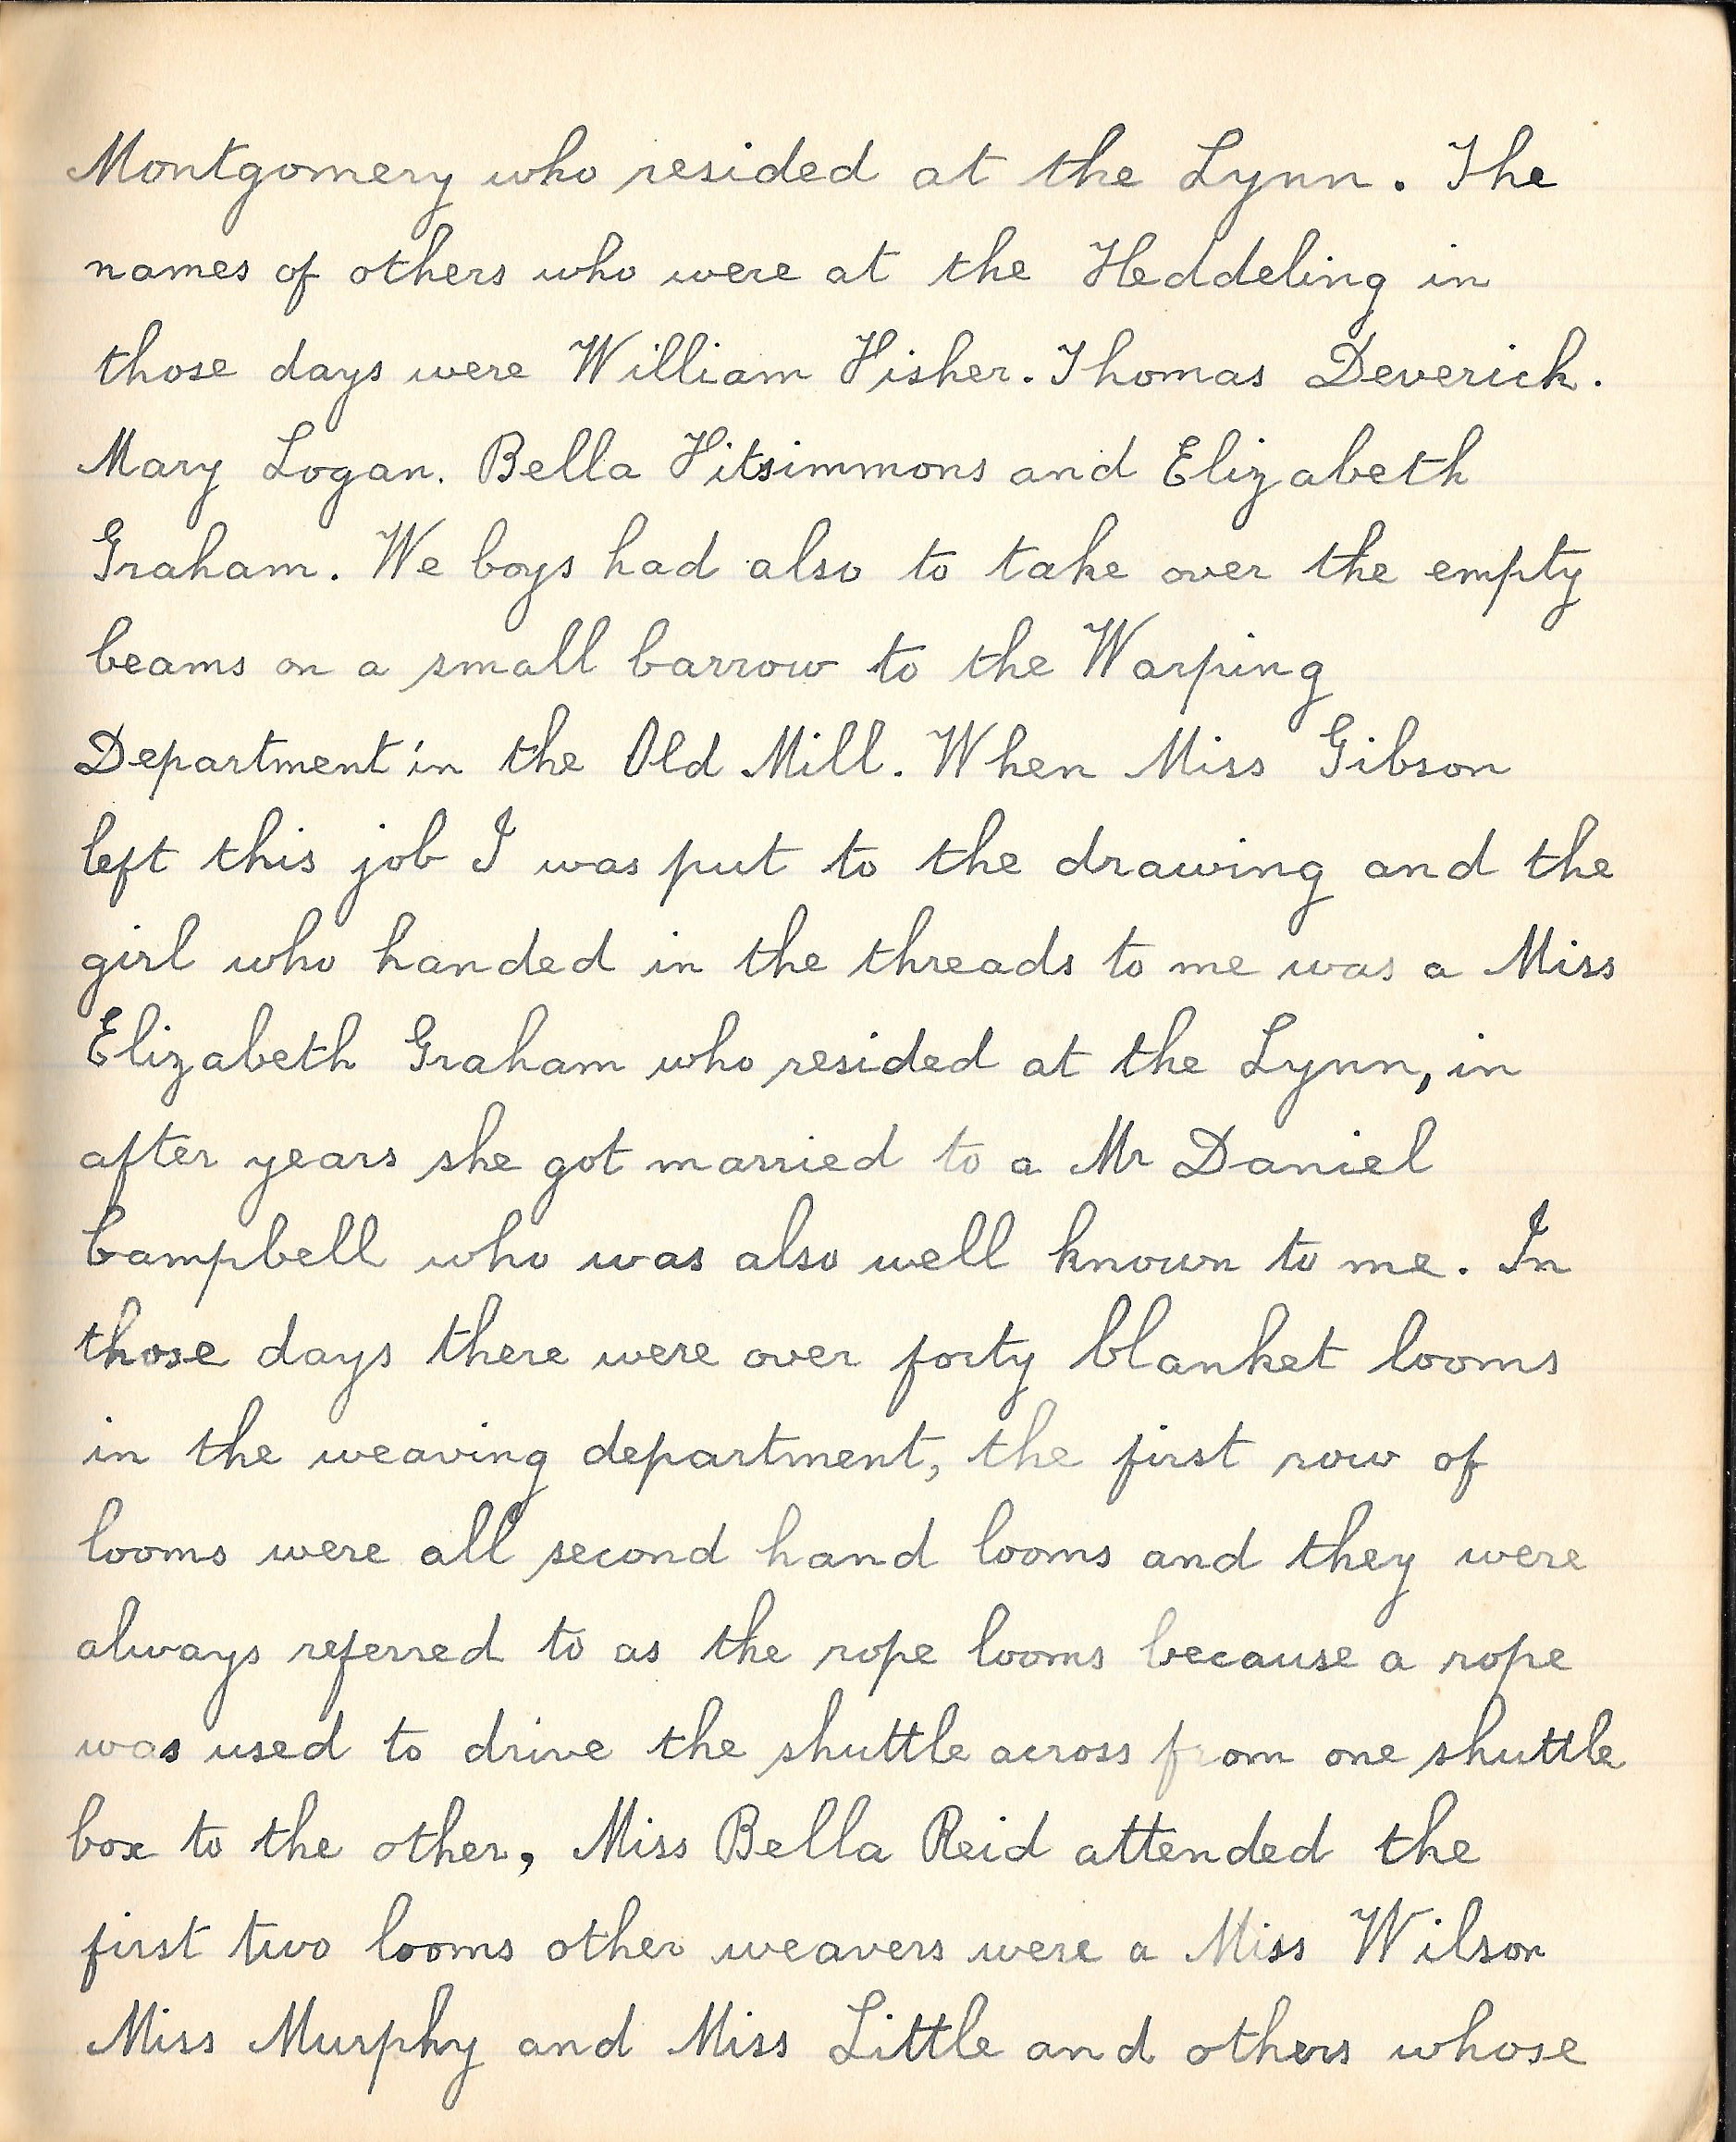 Montgomery who resided at the Lynn. The
names of others who were at the Heddeling in
those days were William Fisher. Thomas Deverick.
Mary Logan. Bella Fitsimmons and Elizabeth
Graham. We boys had also to take over the empty
beams on a small barrow to the Warping
Department in the Old Mill. When Miss Gibson
left this job I was put to the drawing and the
girl who handed in the threads to me was a Miss
Elizabeth Graham who resided at the Lynn, in
after years she got married to a Mr Daniel
Campbell who was also well known to me. In
those days there were over forty blanket looms
in the weaving department, the first row of
looms were all second hand looms and they were
always referred to as the rope looms because a rope
was used to drive the shuttle across from one shuttle
box to the other, Miss Bella Reid attended the
first two looms other weavers were a Miss Wilson
Miss Murphy and Miss Little and others whose